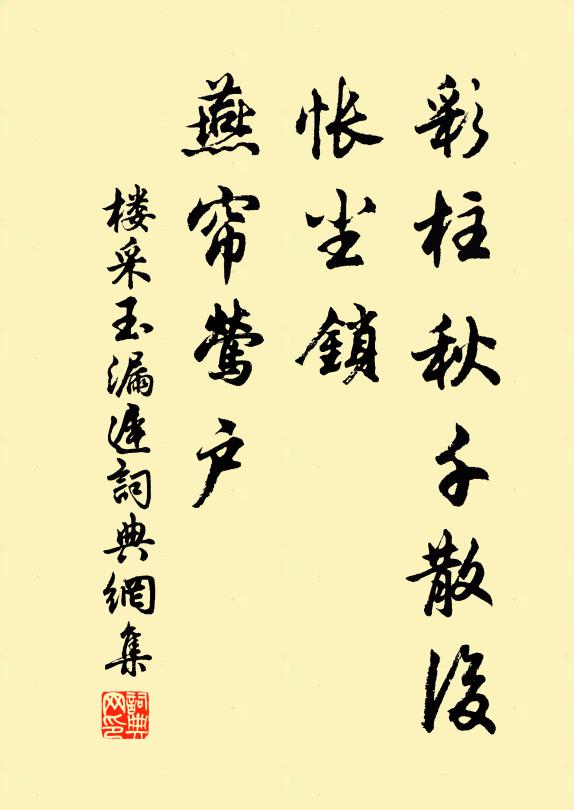 彩柱秋千散後
悵尘鎖
燕帘鶯户
楼采玉漏遲詞典網集
詞典
网印